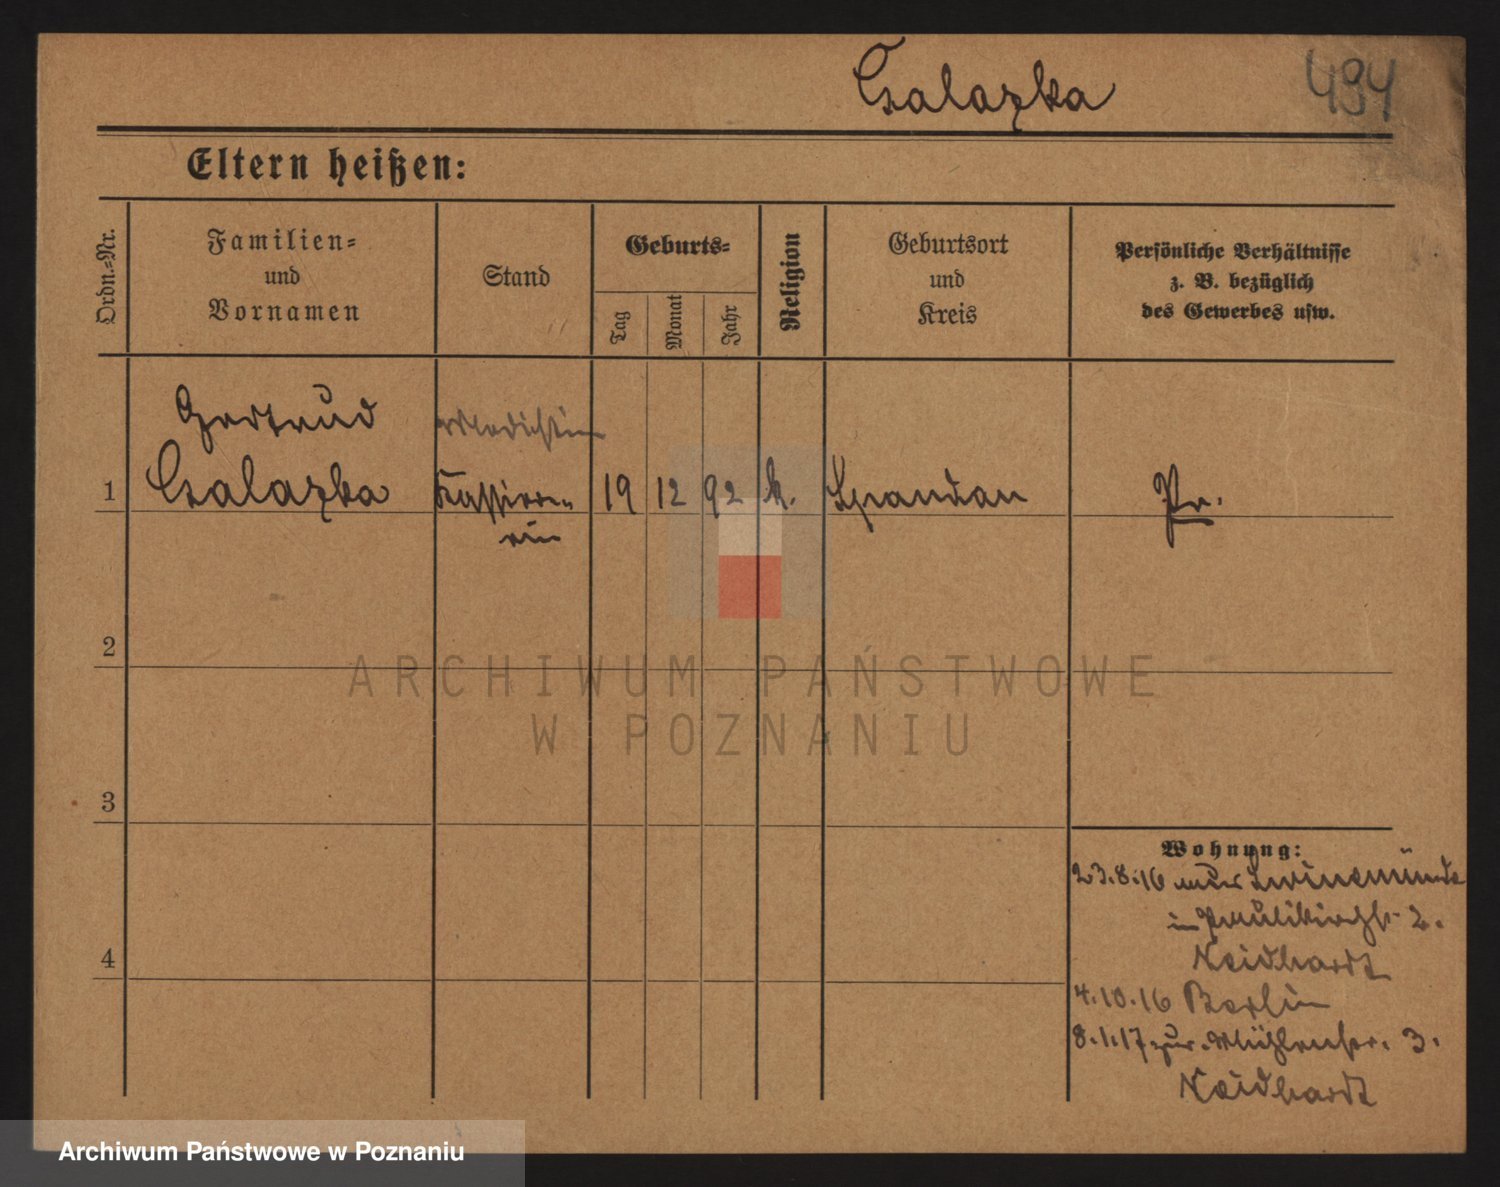 Csalazka
494
Eltern heißen:
Ordn.=Nr.
Familien=
und
Vornamen
Stand
Geburts=
Tag
Monat
Jahr
Religion
Geburtsort
und
Kreis
Persönliche Verhältnisse
z. B. bezüglich
des Gewerbes usw.
Gertrud
Modistin
1 Csalazka Kassire= 19 12 92 k. Spandau Pr.
rin
2
3
4
Wohnung:
23.8.16 Swinemünde
in Paulikirchst 2.
Neidhardt
4.10.16 Berlin
8.1.17 zur. Mühlenstr. 3.
Neidhardt
ARCHIWUM PAŃSTWOWE
W POZNANIU
Archiwum Państwowe w Poznaniu